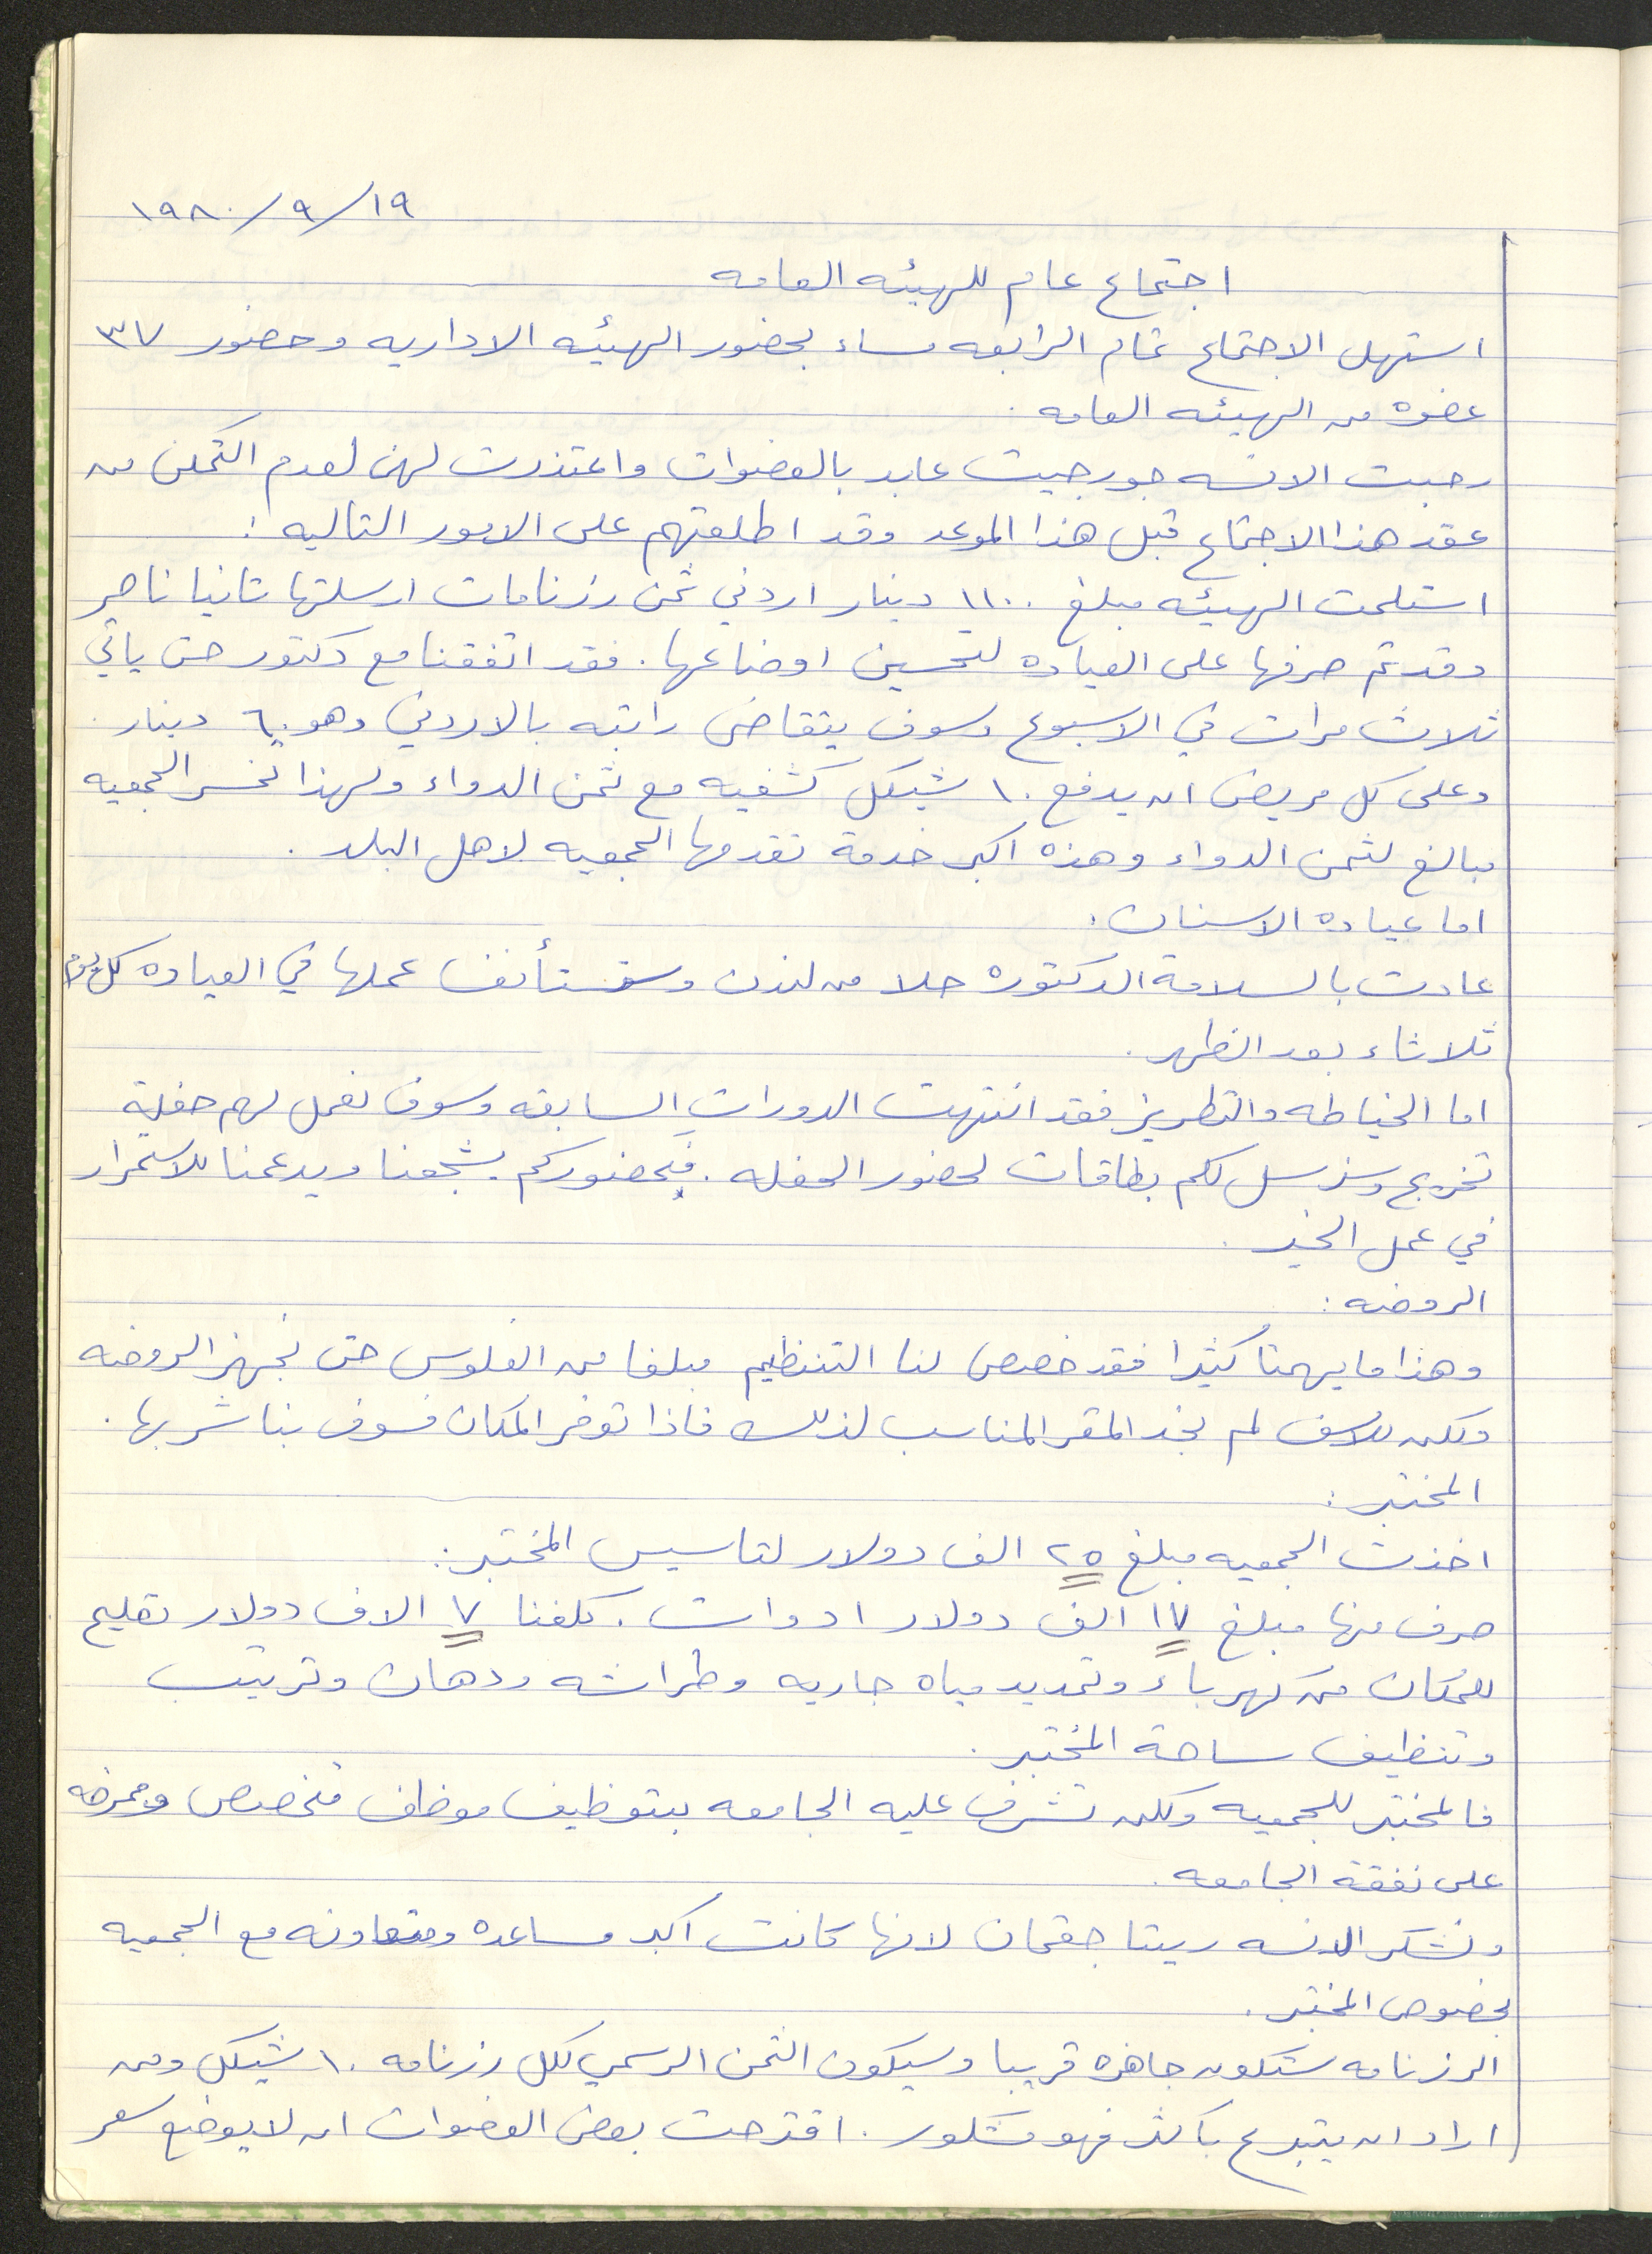 ١٩/٩/١٩٨٠
اجتماع عام للهيئه العامه
استهل الاجتماع تمام الرابعه مساء بحضور الهيئه الاداريه وحضور ٣٧
عضوه من الهيئه العامه .
رحبت الانسه جورجيت عابد بالعضوات واعتذرت لهن لعدم التمكن من
عقد هذا الاجتماع قبل هذا الموعد وقد اطلعتهم على الامور التاليه :
استلمت الهيئه مبلغ ١١٠٠ دينار اردني ثمن رزنامات ارسلتها تانيا ناصر
وقد تم صرفها على العياده لتحسين اوضاعها . فقد اتفقنا مع دكتور حتى ياتي
ثلاث مرات في الاسبوع وسوف يتقاضى راتبه بالاردني وهو ٦٠ دينار .
وعلى كل مريض ان يدفع ١٠ شيكل كشفيه مع ثمن الدواء ولهذا تخسر الجمعيه
مبالغ لثمن الدواء وهذه اكبر خدمة تقدمها الجمعيه لاهل البلد .
اما عيادة الاسنان :
عادت بالسلامة الدكتوره حلا من لندن وستستأنف عملها في العياده كل يوم
ثلاثاء بعد الظهر .
اما الخياطه والتطريز فقد انتهت الدورات السابقه وسوف نعمل لهم حفلة
تخريج وسنرسل لكم بطاقات لحضور الحفله . فبحضوركم يشجعنا ويدعمنا للاستمرار
في عمل الخير .
الروضه :
وهذا ما يهمنا كثيرا فقد خصص لنا التنظيم مبلغا من الفلوس حتى نجهز الروضه
ولكن للاسف لم نجد المقر المناسب لذلك فاذا توفر المكان فسوف بناشر بها .
المختبر :
اخذت الجمعيه مبلغ ٢٥ الف دولار لتاسيس المختبر :
صرف منها مبلغ ١٧ الف دولار ادوات . كلفنا ٧ الاف دولار تصليح
للمكان من كهرباء وتمديد مياه جاريه وطراشه ودهان وترتيب
وتنظيف ساحة المختبر .
فالمختبر للجمعيه ولكن تشرف عليه الجامعه بتوظيف موظف متخصص وممرضه
على نفقة الجامعه .
ونشكر الانسه ريتا جقمان لانها كانت اكبر مساعده ومتعاونه مع الجمعيه
بخصوص المختبر .
الرزنامه ستكون جاهزه قريبا وسيكون الثمن الرسمي لكل رزنامه ١٠ شيكل ومن
اراد ان يتبرع باكثر فهو مشكور . اقترحت بعض العضوات ان لا يوضع سعر